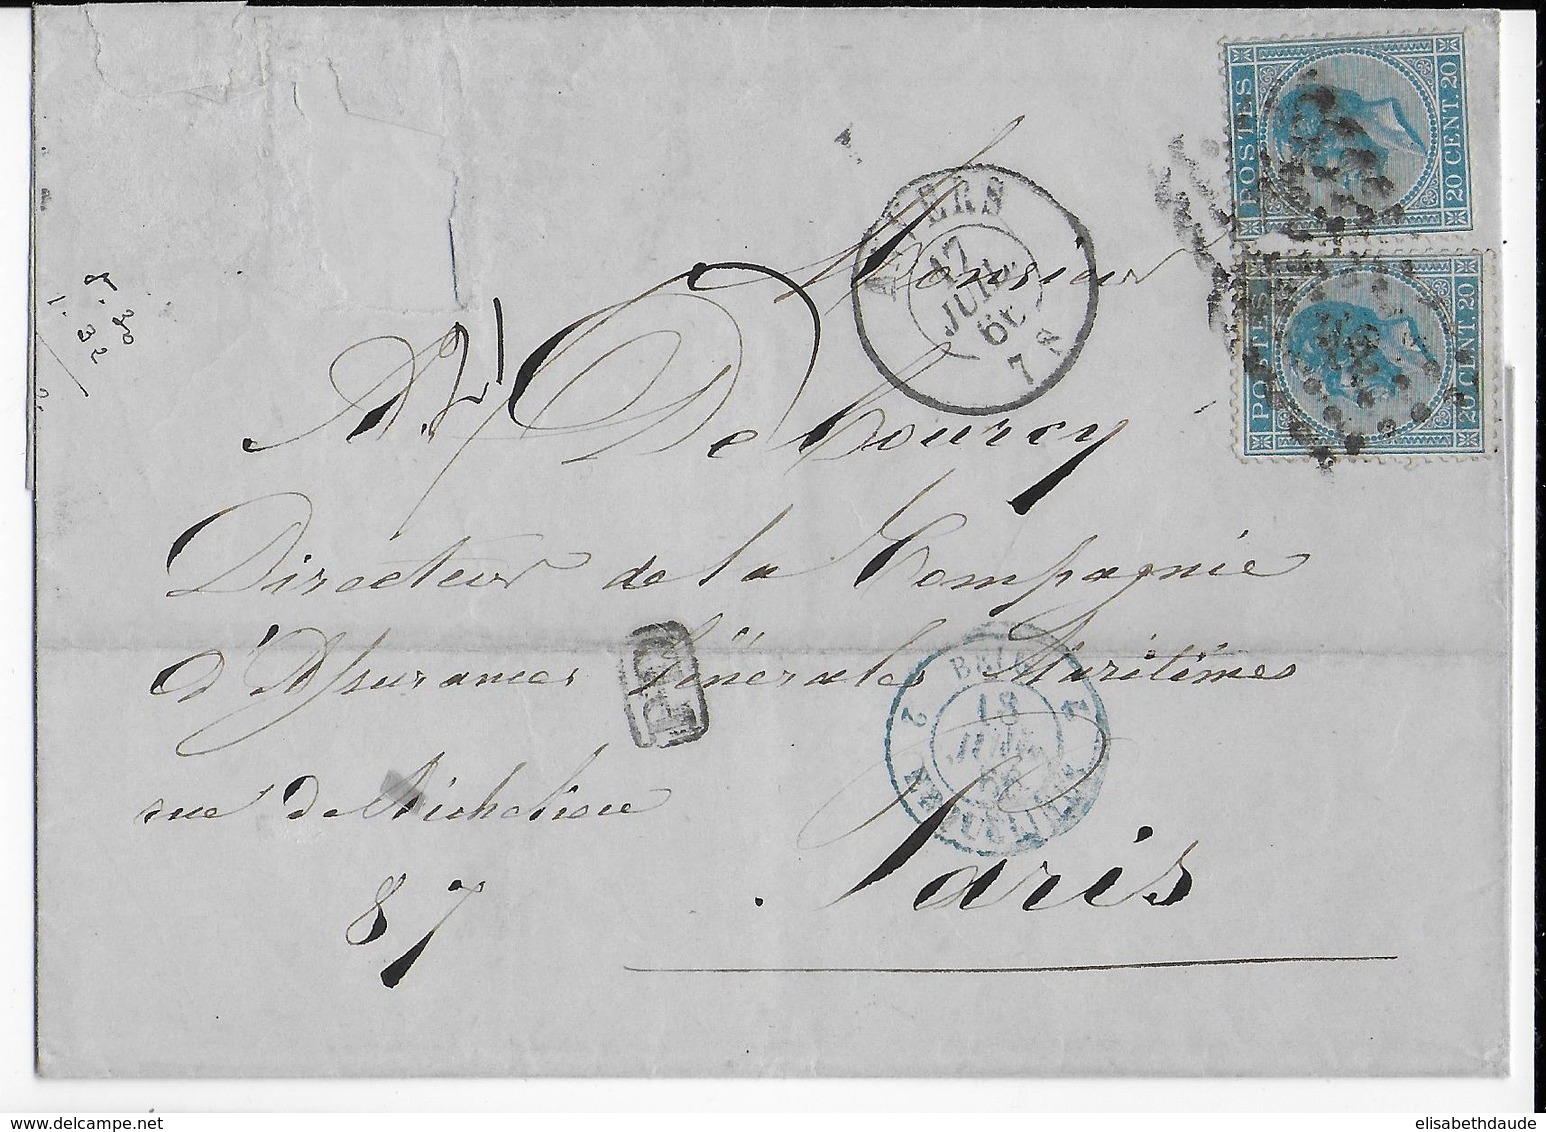 POSTES
20 CENT. 20
POSTES
20 CENT. 20
ANVERS
17
JUIL
66
7 S
Monsieur
A. De Courcy
Directeur de la Compagnie
d'Assurances Générales Maritimes
rue de Richelieu
87
Paris
PD
BELG.
2
18
JUIL
66
2
8.30
1.32
elisabethdaude